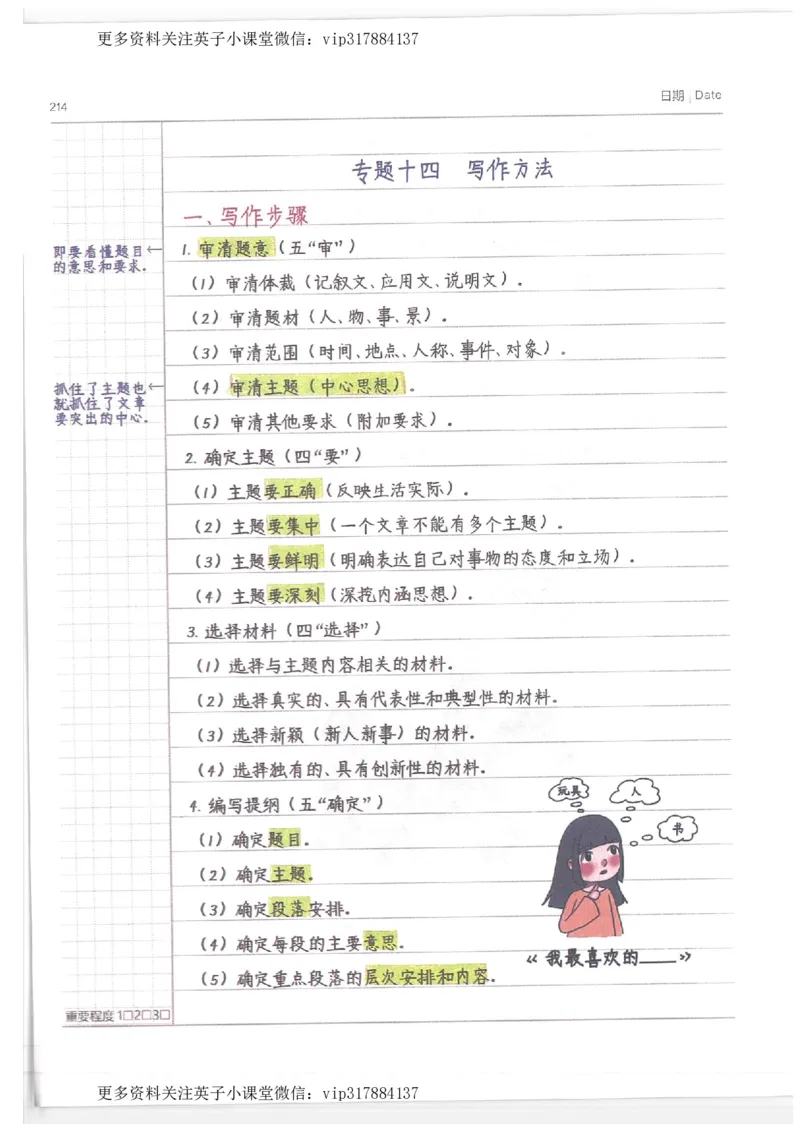 更多资料关注英子小课堂微信：vip317884137
214
日期 | Date
专题十四 写作方法
一、写作步骤
即要看懂题目
的意思和要求.
1. 审清题意（五“审”）
（1）审清体裁（记叙文、应用文、说明文）.
（2）审清题材（人、物、事、景）.
（3）审清范围（时间、地点、人称、事件、对象）.
抓住了主题也
就抓住了文章
要突出的中心.
（4）审清主题（中心思想）.
（5）审清其他要求（附加要求）.
2. 确定主题（四“要”）
（1）主题要正确（反映生活实际）.
（2）主题要集中（一个文章不能有多个主题）.
（3）主题要鲜明（明确表达自己对事物的态度和立场）.
（4）主题要深刻（深挖内涵思想）.
3. 选择材料（四“选择”）
（1）选择与主题内容相关的材料.
（2）选择真实的、具有代表性和典型性的材料.
（3）选择新颖（新人新事）的材料.
（4）选择独有的、具有创新性的材料.
4. 编写提纲（五“确定”）
（1）确定题目.
（2）确定主题.
（3）确定段落安排.
（4）确定每段的主要意思.
（5）确定重点段落的层次安排和内容.
玩具
人
书
《我最喜欢的____》
重要程度 1□2□3□
更多资料关注英子小课堂微信：vip317884137